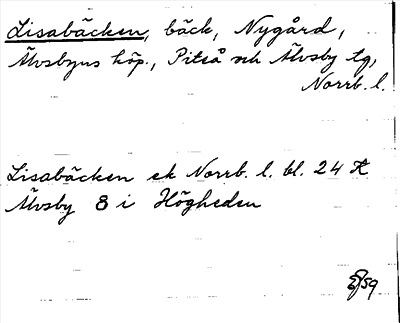 Lisabäcken, bäck, Nygård,
Älvsbyns köp., Piteå och Älvsby tg,
Norrb. l.
Lisabäcken ek Norrb. l. bl. 24
Älvsby 8 i Högheden
59